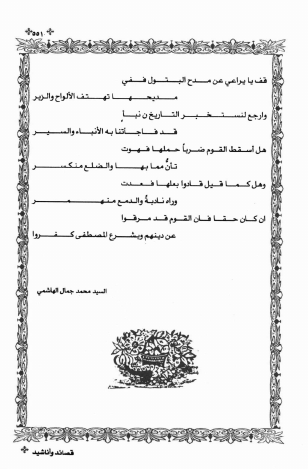 ٥٥١
قف يا يراعي عن مدح البتول ففي
مديحها تهتف الألواح والزبر
وارجع لنستخبر التاريخ ن نبإ
قد فاجأتنا به الأنباء والسير
هل أسقط القوم ضرباً حملها فهوت
تأنُّ مما بها والضلع منكسر
وهل كما قيل قادوا بعلها فعدت
وراه نادبة والدمع منهمر
ان كان حقا فان القوم قد مرقوا
عن دينهم وبشرع المصطفى كفروا
السيد محمد جمال الهاشمي
قصائد وأناشيد